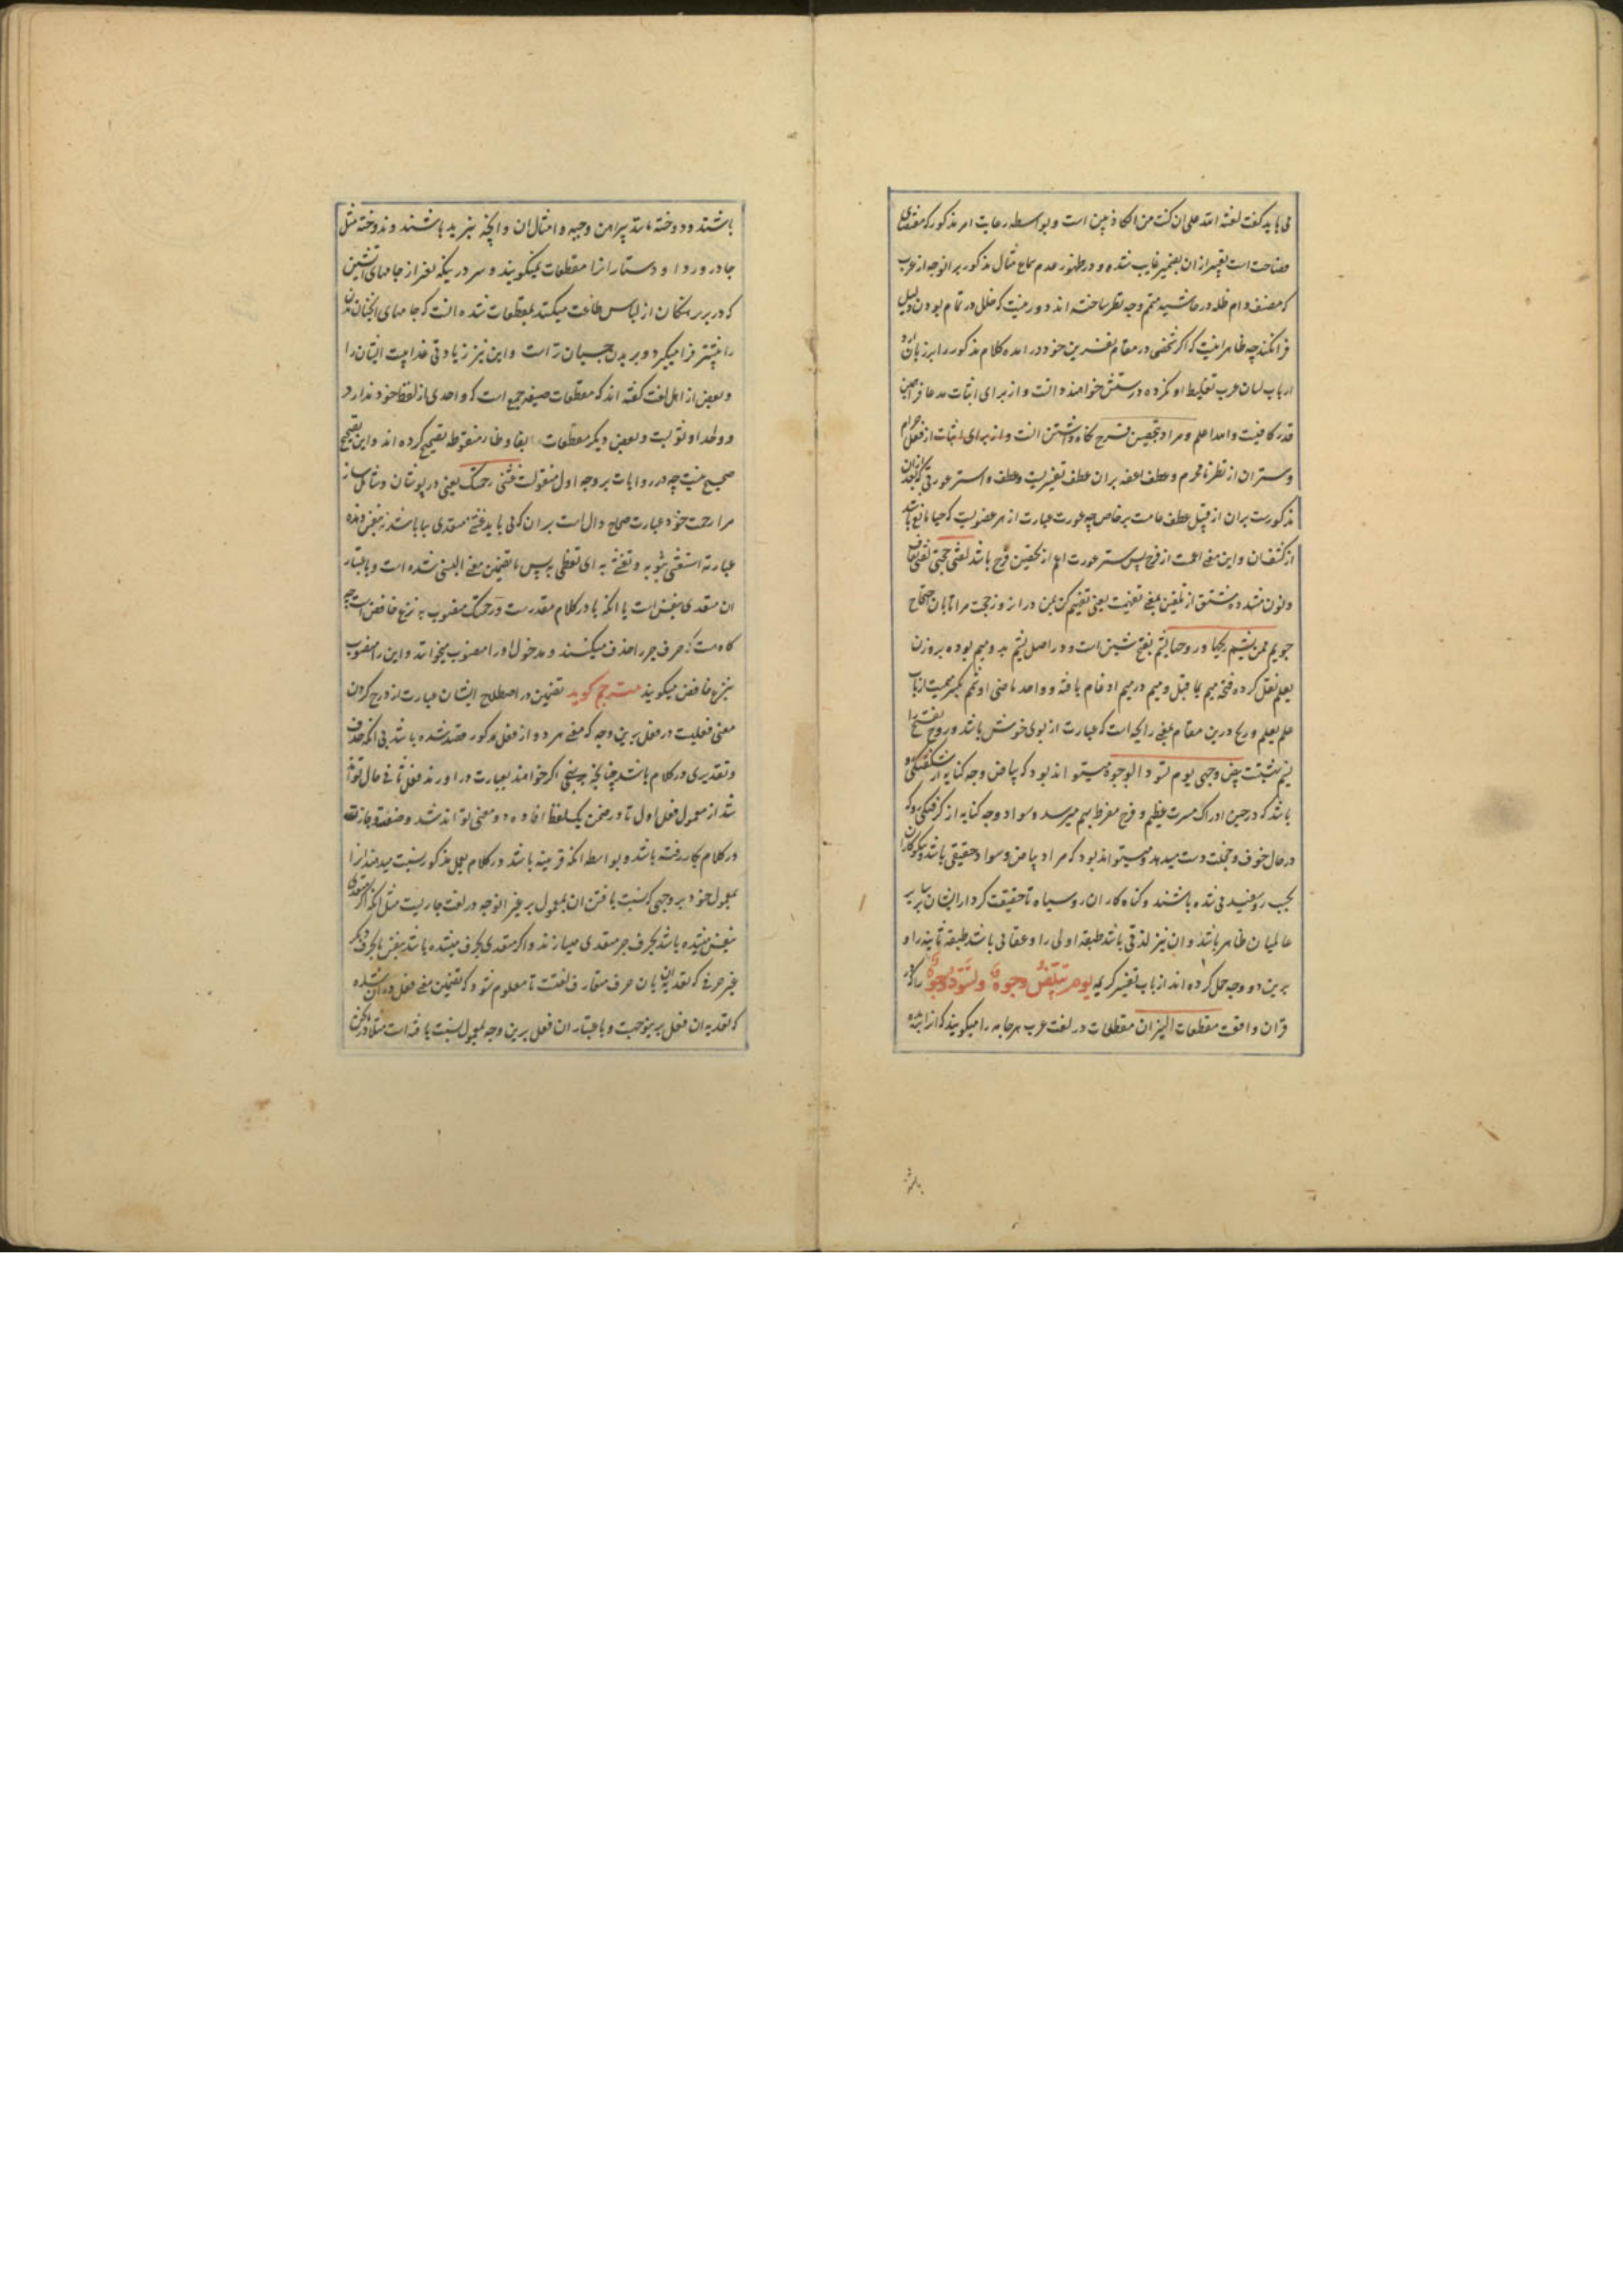 می باید گفت لعنة الله علی ان کنت من الکاذبین است و بواسطه رعایت امر مذکور که مقتضای
فصاحت است تعبیر از ان بضمیر غایب شده و در ظهور عدم سماع مثال مذکور بر انوجه از عرب
که مصنف دام ظله در حاشیه متمم وجه نظر ساخته اند دور نیست که خلل در تمام بودن دلیل
فرا نکند چه ظاهر انیست که اگر شخصی در مقام نفرین خود در امده کلام مذکور را بر زبان
ارباب لسان عرب تغلیط او نکرده درستش خوانند دانست و از برای اثبات مدعا همین
قدر کافیست والله اعلم و مراد بتحصین فرج نگاه داشتن انست از فعل حرام
و ستر ان از نظر نامحرم و عطف اعفه بران عطف تفسیریست و عطف واستر عورتی که بعد از ان
مذکورست بران از قبیل عطف عامست بر خاص چه عورت عبارت از هر عضویست که حیا مانع باشد
از کشف ان و این معنی اعمست از فرج پس ستر عورت اعم از تحصین فرج باشد لقنی حجتی بقاف
و نون مشدده مشتق از تلقین بمعنی تفهیمست یعنی تفهیم کن بمن در ان روز حجت مرا تا بان
جویم ممن یشم ریحها و روحها یشم بفتح شین است و در اصل یشمم بدو میم بوده بر وزن
یعلم نقل کرده فتحه میم بما قبل و میم در میم ادغام یافته و واحد ماضی او شمم بکسر میمست از باب
علم یعلم و ریح درین مقام بمعنی رایحه است که عبارت از بوی خوش باشد و روح بفتح را
نسیم بیض وجهی یوم تسود الوجوه میتواند بود که بیاض وجه کنایه از شکفتگی رو
باشد که در حین ادراک مسرت عظیم و فرح مفرط بهم میرسد و سواد وجه کنایه از گرفتگی رو که
در حال خوف و خجلت دست میدهد و میتواند بود که مراد بیاض و سواد حقیقی باشد و نیکوکاران
بحسب رو سفید شده باشند و گناه کاران رو سیاه تا حقیقت کردار ایشان بر سایر
عالمیان ظاهر باشد و ان نیز لذتی باشد طبقه اولی را و عقابی باشد طبقه ثانیه را و
برین دو وجه حمل کرده اند ارباب تفسیر کریمه یوم تبیض وجوه وتسود وجوه را که در
قران واقعست مقطعات النیران مقطعات در لغت عرب هر جامه را میگویند که انرا بریده
باشند و دوخته مانند پیراهن و جبه و امثال ان و انچه نبریده باشند و ندوخته مثل
چادر و ردا و دستار انرا مقطعات نمیگویند و سر در اینکه تعبیر از جامهای اتشین
که در بر ایشان از لباس میکنند بمقطعات شده انست که جامهای انچنان بدن
را بیشتر فرا میگیرد و بر بدن چسبان تر است و این نیز زیادتی عذابست ایشان را
و بعضی از اهل لغت گفته اند که مقطعات صیغه جمع است که واحدی از لفظ خود ندارد
و واحد او ثوبست و بعضی دیگر مقطعات بفا و ظاء منقوطه تصحیح کرده اند و این تصحیح
صحیح نیست چه در روایات بر وجه اول منقولست غشنی رحمتک یعنی در پوشان و شامل ساز
مرا رحمت خود عبارت صحاح دال است بران که می باید غشی متعدی ببا باشد نه بنفس
عبارته استغشی بثوبه و تغشی به ای تغطی به پس یا بتضمین معنی البسنی شده است و باعتبار
ان متعدی بنفس است یا انکه با در کلام مقدرست و رحمتک منصوب به نزع خافض است چه
گاه هست که حرف جر را حذف میکنند و مدخول او را منصوب میخوانند و این را منصوب
بنزع خافض میگویند مترجم گوید تضمین در اصطلاح ایشان عبارت از درج کردن
معنی فعلیست در فعل برین وجه که معنی هر دو از فعل مذکور قصد شده باشد بی انکه حذف
و تقدیری در کلام باشد چنانچه اگر خواهند بعبارت در اورند فعل ثانی حال تواند
شد از معمول فعل اول تا در ضمن یک لفظ افاده دو معنی تواند شد
در کلام بکار رفته باشد و بواسطه انکه قرینه باشد در کلام بعمل مذکور نسبت میدهند انرا
بمعمول خود بر وجهی که نسبت یافتن ان بمعمول بر غیر انوجه در لغت جاریست مثل انکه اگر متعدی
بنفس میشده باشد بحرف جر متعدی میسازند و اگر متعدی بحرف میشده باشد بنفس یا بحرف دیگر
غیر حرفی که تعدیه ان بان حرف متعارف لغتست تا معلوم شود که تضمین معنی فعل در ان شده
که تعدیه ان فعل برینوجهست و باعتبار ان فعل برین وجه بمعمول نسبت یافته است مثلا در